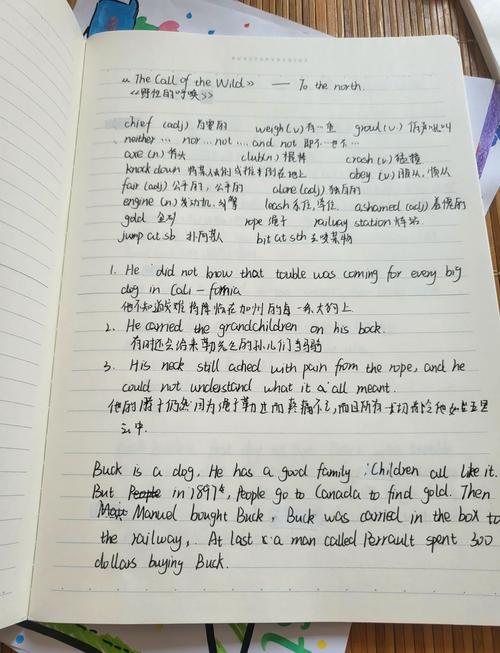 《The Call of the Wild》 —— To the north.
《野性的呼唤》
chief (adj) 首要的 weigh (v) 有一重 groul (v) 低声吼叫
neither … nor … not … and not 即不…也不…
axe (n) 斧头 club (n) 棍棒 crash (v) 猛撞
knock down 将某人击倒或推倒在地上 obey (v) 服从，顺从
fair (adj) 公平的，公平的 alone (adj) 独自的
engine (n) 发动机，引擎 leash 牵住，牵住 ashamed (adj) 羞愧的
gold 金 rope 绳子 railway station 站
jump at sb 扑向某人 bit at sth 咬某物
1. He did not know that touble was coming for every big
dog in Cali - fornia
他不知道灾难将降临在加州的每一条大狗上.
2. He carried the grandchildren on his back.
有时还会治来勒先生的孙儿们当骑
3. His neck still ached with pain from the rope, and he
could not understand what it a all meant.
他的脖子仍然因为绳子勒过而疼痛不已,而且所有一切都令他如坠五里
云中.
Buck is a dog. He has a good family. Children all like it.
But People in 1897, People go to Canada to find gold. Then
Manual bought Buck, Buck was carried in the box to
the railway,. At last a man called Perrault spent 300
dollars buying Buck.